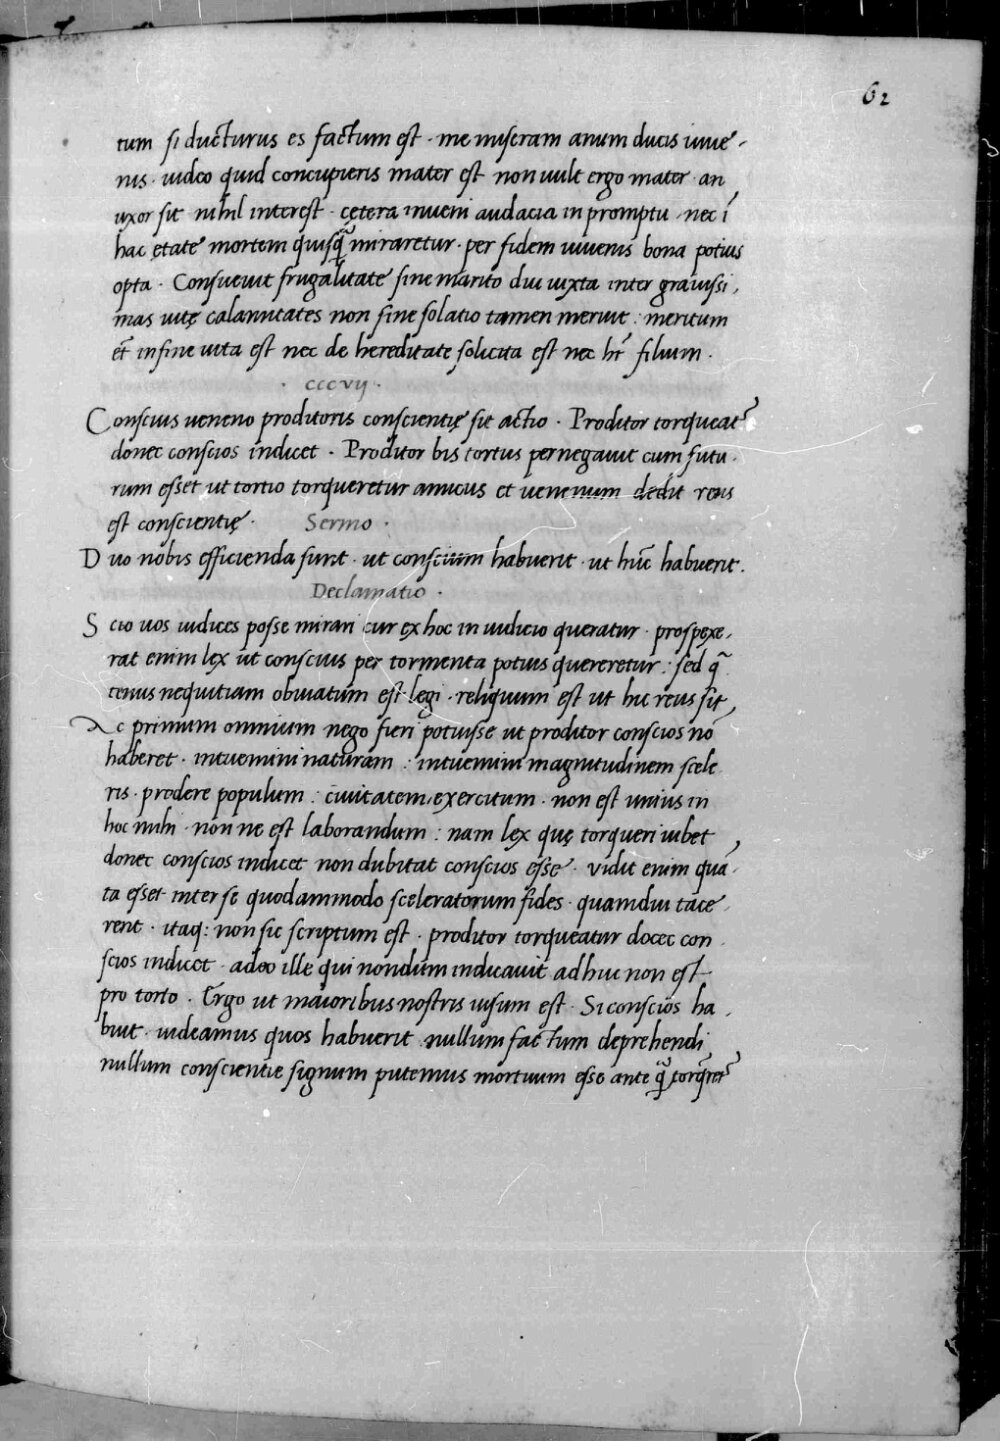 62
tum si ducturus es factum est · me miseram anum ducis iuue-
nis · uideo quid concupieris mater est non uult ergo mater · an
uxor sit nihil interest · cętera inueni audacia in promptu · nec ī
hac ętate mortem quisq̄ miraretur · per fidem iuuenis bona potius
opta · Consueuit frugalitate sine marito diu iuxta inter grauissi,
mas uitę calamitates non sine solatio tamen meruit : meritum
et̄ in fine uita est nec de hereditate solicita est nec ht̄ filium ·
· cccvij ·
Conscius ueneno proditoris conscientię sit actio · Proditor torqueat̄
donec conscios indicet · Proditor bis tortus pernegauit cum futu ·
rum esset ut tortio torqueretur amicus et uenenum dedit reus
est conscientię · Sermo ·
Duo nobis efficienda sunt · ut conscium habuerit · ut hūc habuerit.
Declamatio ·
Scio uos iudices posse mirari cur ex hoc in iudicio queratur · prospexe,
rat enim lex ut conscius per tormenta potius quereretur : sed q̄
tenus nequitiam obuiatum est legi · reliquum est ut hic reus sit,
Ac primum omnium nego fieri potuisse ut proditor conscios nō
haberet · intuemini naturam : intuemini magnitudinem scele
ris · prodere populum : ciuitatem, exercitum · non est unius in
hoc mihi · non ne est laborandum : nam lex quę torqueri iubet
donec conscios indicet non dubitat conscios esse · vidit enim quā ·
ta esset inter se quodammodo sceleratorum fides · quamdiu tace,
rent · itaq: non sic scriptum est · proditor torqueatur docec con ·
scios indicet · adeo ille qui nondum indicauit adhuc non est
pro torto · Ergo ut maioribus nostris uisum est · Si conscios ha ·
buit · uideamus quos habuerit · nullum factum deprehendi
nullum conscientie signum putemus mortuum esse ante q̄ torq̄ret̄